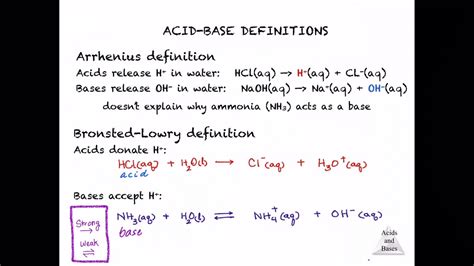 ACID-BASE DEFINITIONS
Arrhenius definition
Acids release H⁺ in water: HCl(aq) → H⁺(aq) + CL⁻(aq)
Bases release OH⁻ in water: NaOH(aq) → Na⁺(aq) + OH⁻(aq)
doesn't explain why ammonia (NH₃) acts as a base
Bronsted-Lowry definition
Acids donate H⁺:
HCl(aq) + H₂O(l) → Cl⁻(aq) + H₃O⁺(aq)
acid
Bases accept H⁺:
Strong →
weak ⇌
NH₃(aq) + H₂O(l) ⇌ NH₄⁺(aq) + OH⁻(aq)
base
Acids
and
Bases